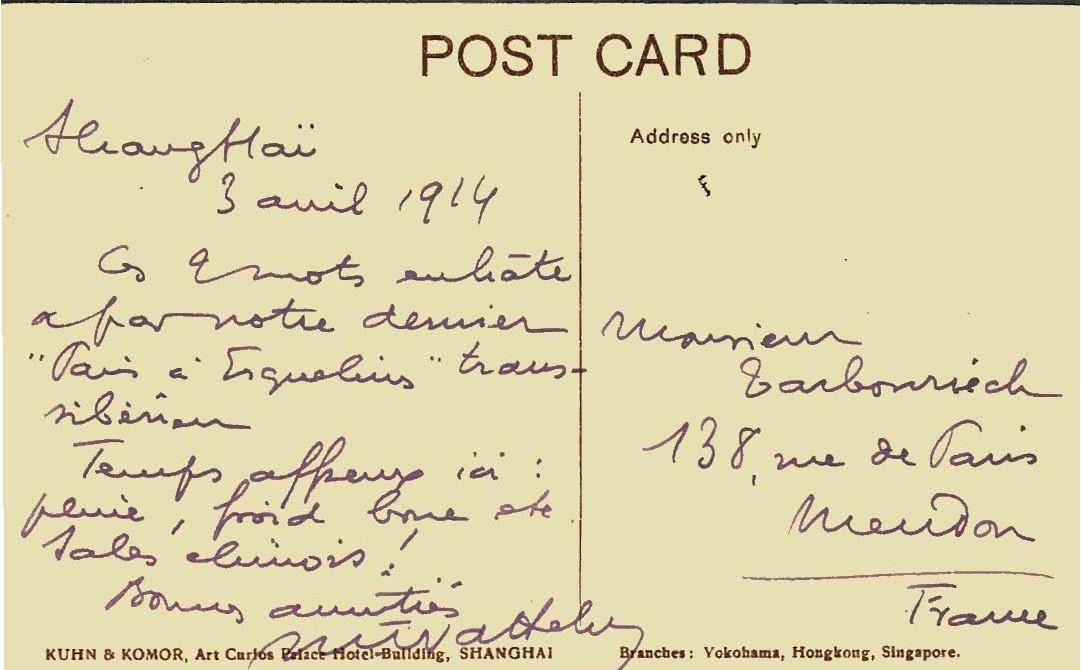 POST CARD
ShangHaï
3 avril 1914
Ces 2 mots en hâte
par notre dernier
"Paris à" trans-
sibérien
Temps affreux ici :
pluie, froid boue etc
Sales chinois !
Bonnes amitiés
KUHN & KOMOR, Art Curios Palace Hotel-Building, SHANGHAI
Address only
Monsieur
Tarbouriech
138, rue de Paris
Meudon
France
Branches: Yokohama, Hongkong, Singapore.